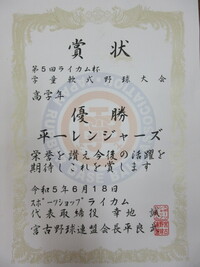 賞状
第5回ライカム杯
学童軟式野球大会
高学年
優勝
平一レンジャーズ
栄誉を讃え今後の活躍を
期待しこれを賞します
令和5年6月18日
スポーツショップライカム
代表取締役 幸地 誠
宮古野球連盟会長平良